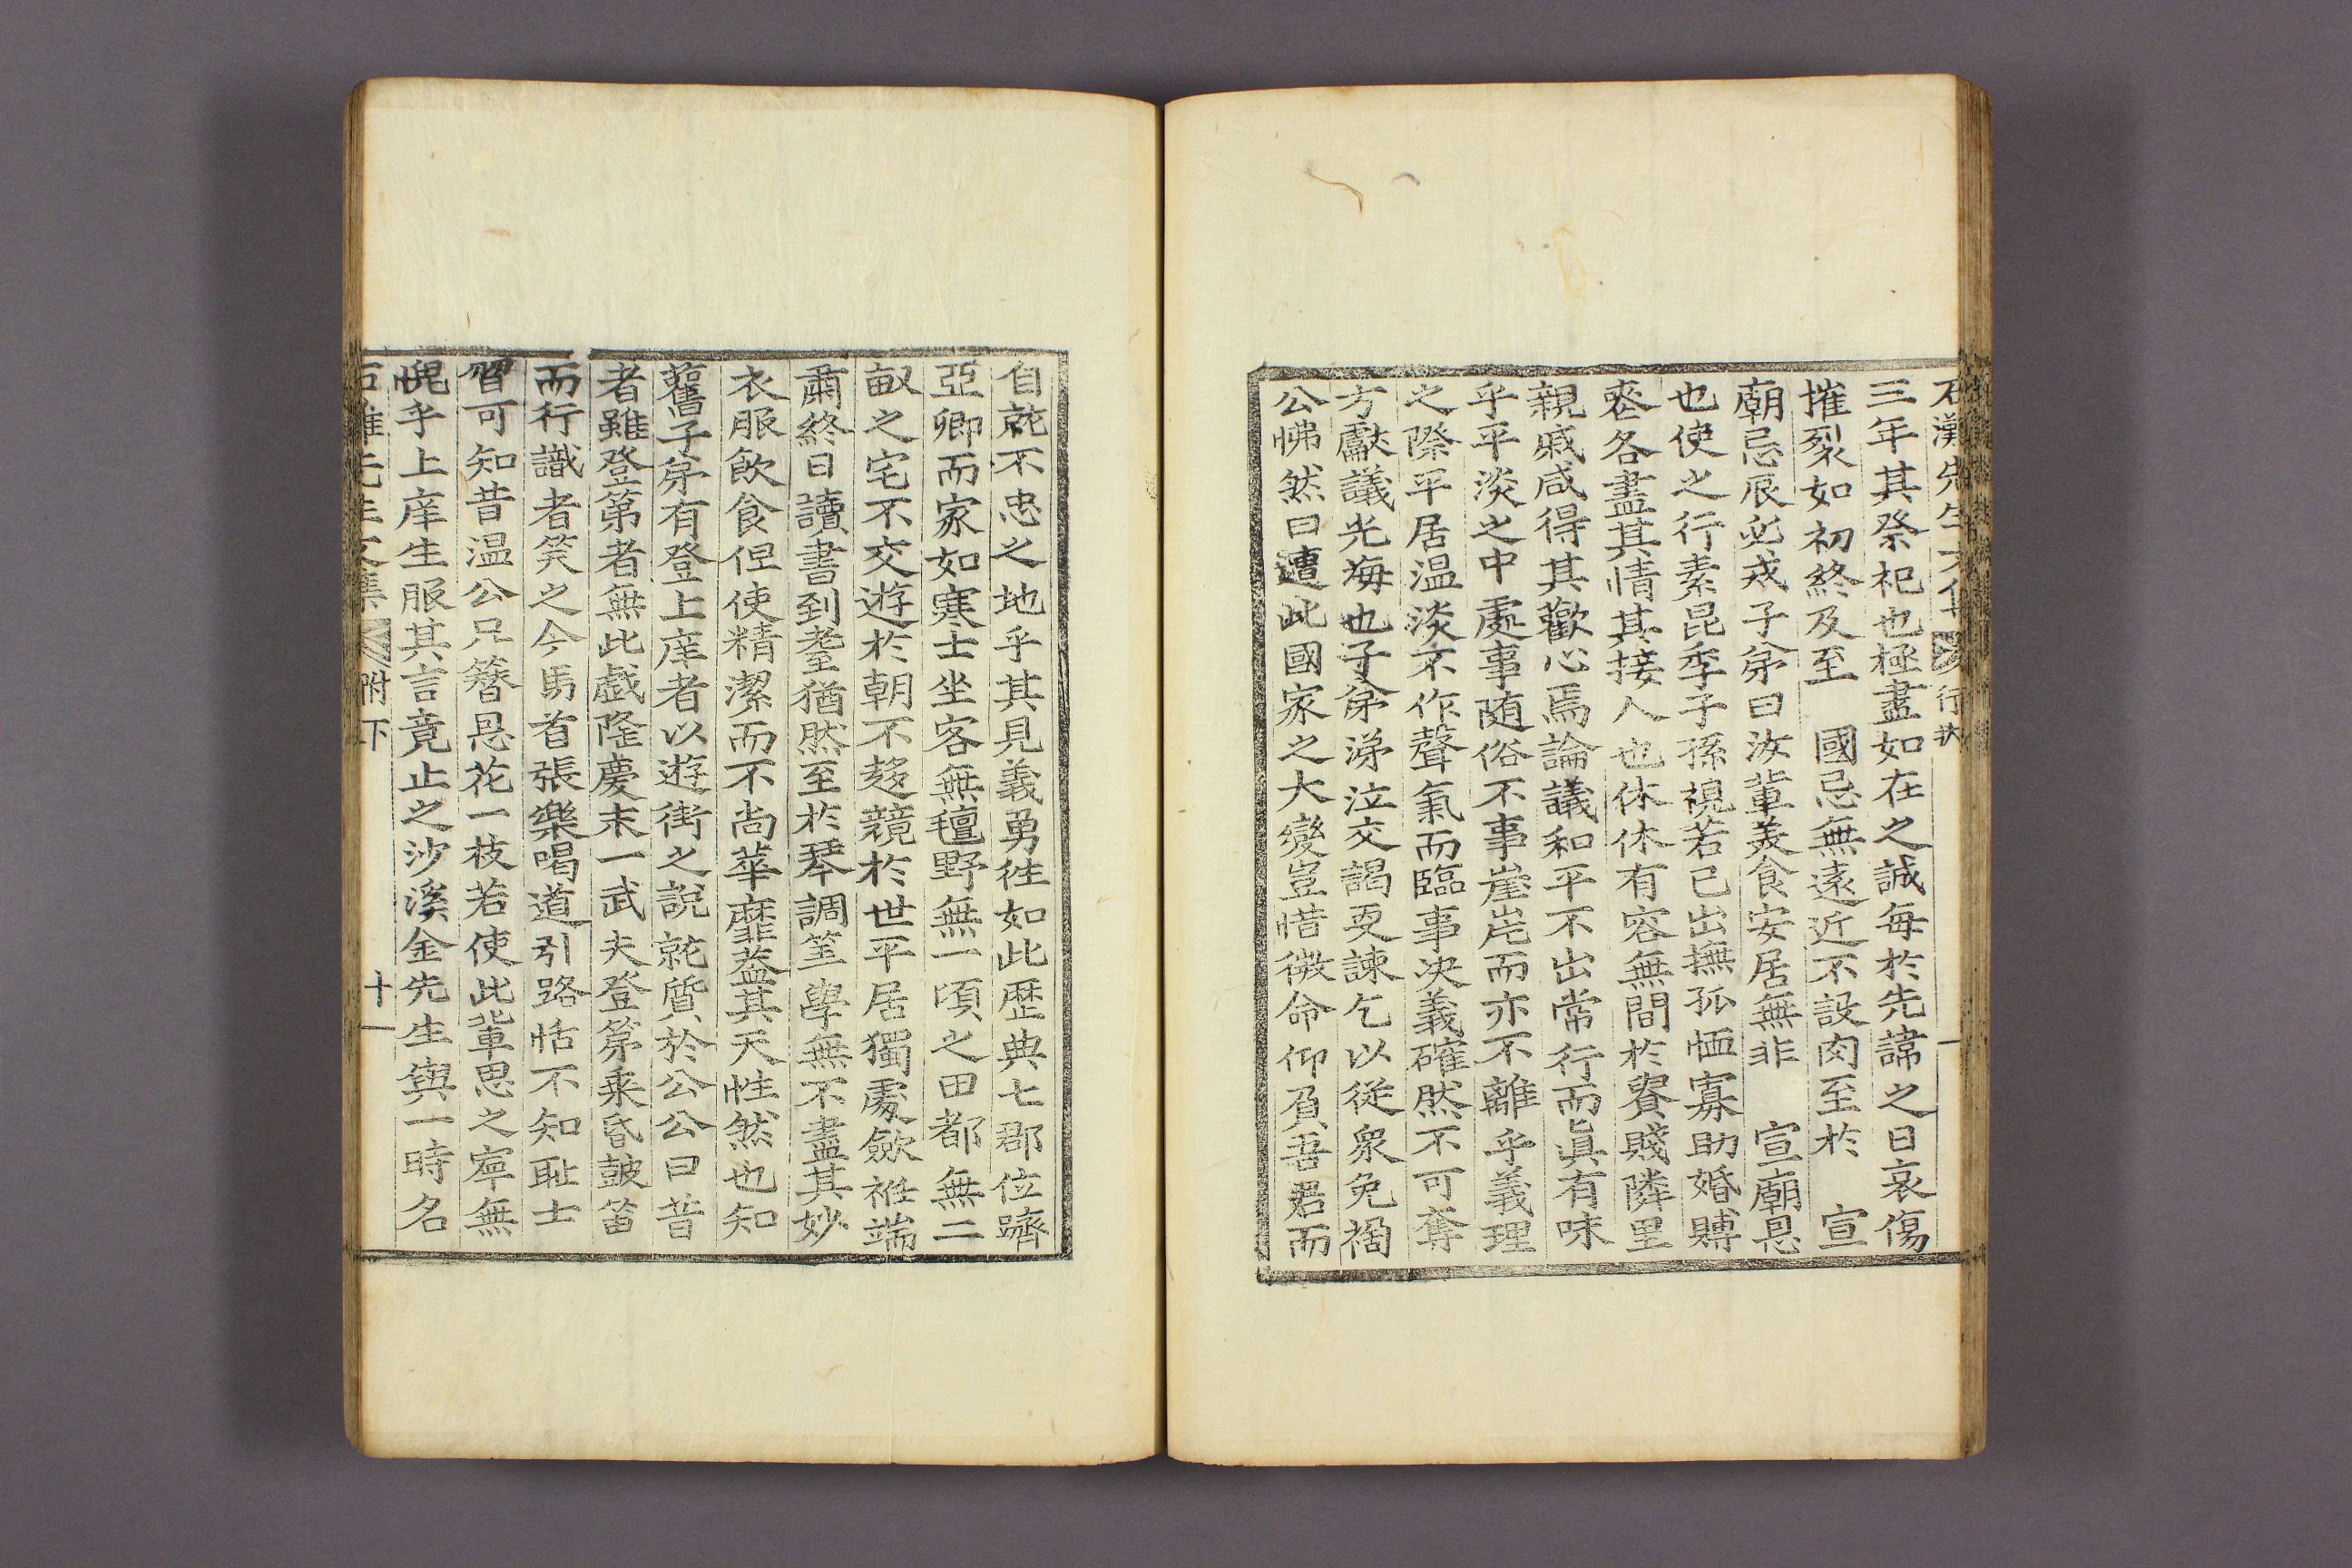 三年其祭祀也極盡如在之誠每於先諱之日哀傷
摧裂如初終及至 國忌無遠近不設肉至於 宣
廟忌辰必戒子弟曰汝輩美食安居無非 宣廟恩
也使之行素昆季子孫視若己出撫孤恤寡助婚賻
喪各盡其情其接人也休休有容無間於貴賤隣里
親戚咸得其歡心焉論議和平不出常行而眞有味
乎平淡之中處事随俗不事崖岸而亦不離乎義理
之際平居温淡不作聲氣而臨事决義確然不可奪
方獻議光海也子弟涕泣交謁更諫乞以從衆免禍
公怫然曰遭此國家之大變豈惜微命仰負吾君而
自就不忠之地乎其見義勇徃如此歷典七郡位躋
亞卿而家如寒士坐客無氊野無一頃之田都無二
畝之宅不交遊於朝不趍競於世平居獨處歛袵端
肅終日讀書到耋猶然至於琴調筆學無不盡其妙
衣服飮食但使精潔而不尚華靡盖其天性然也知
舊子弟有登上庠者以遊街之說就質於公公曰昔
者雖登第者無此戱隆慶末一武夫登第乘昏皷笛
而行識者笑之今馬首張樂喝道引路恬不知耻士
習可知昔温公只簪恩花一枝若使此輩思之寧無
愧乎上庠生服其言竟止之沙溪金先生與一時名
附下 十一